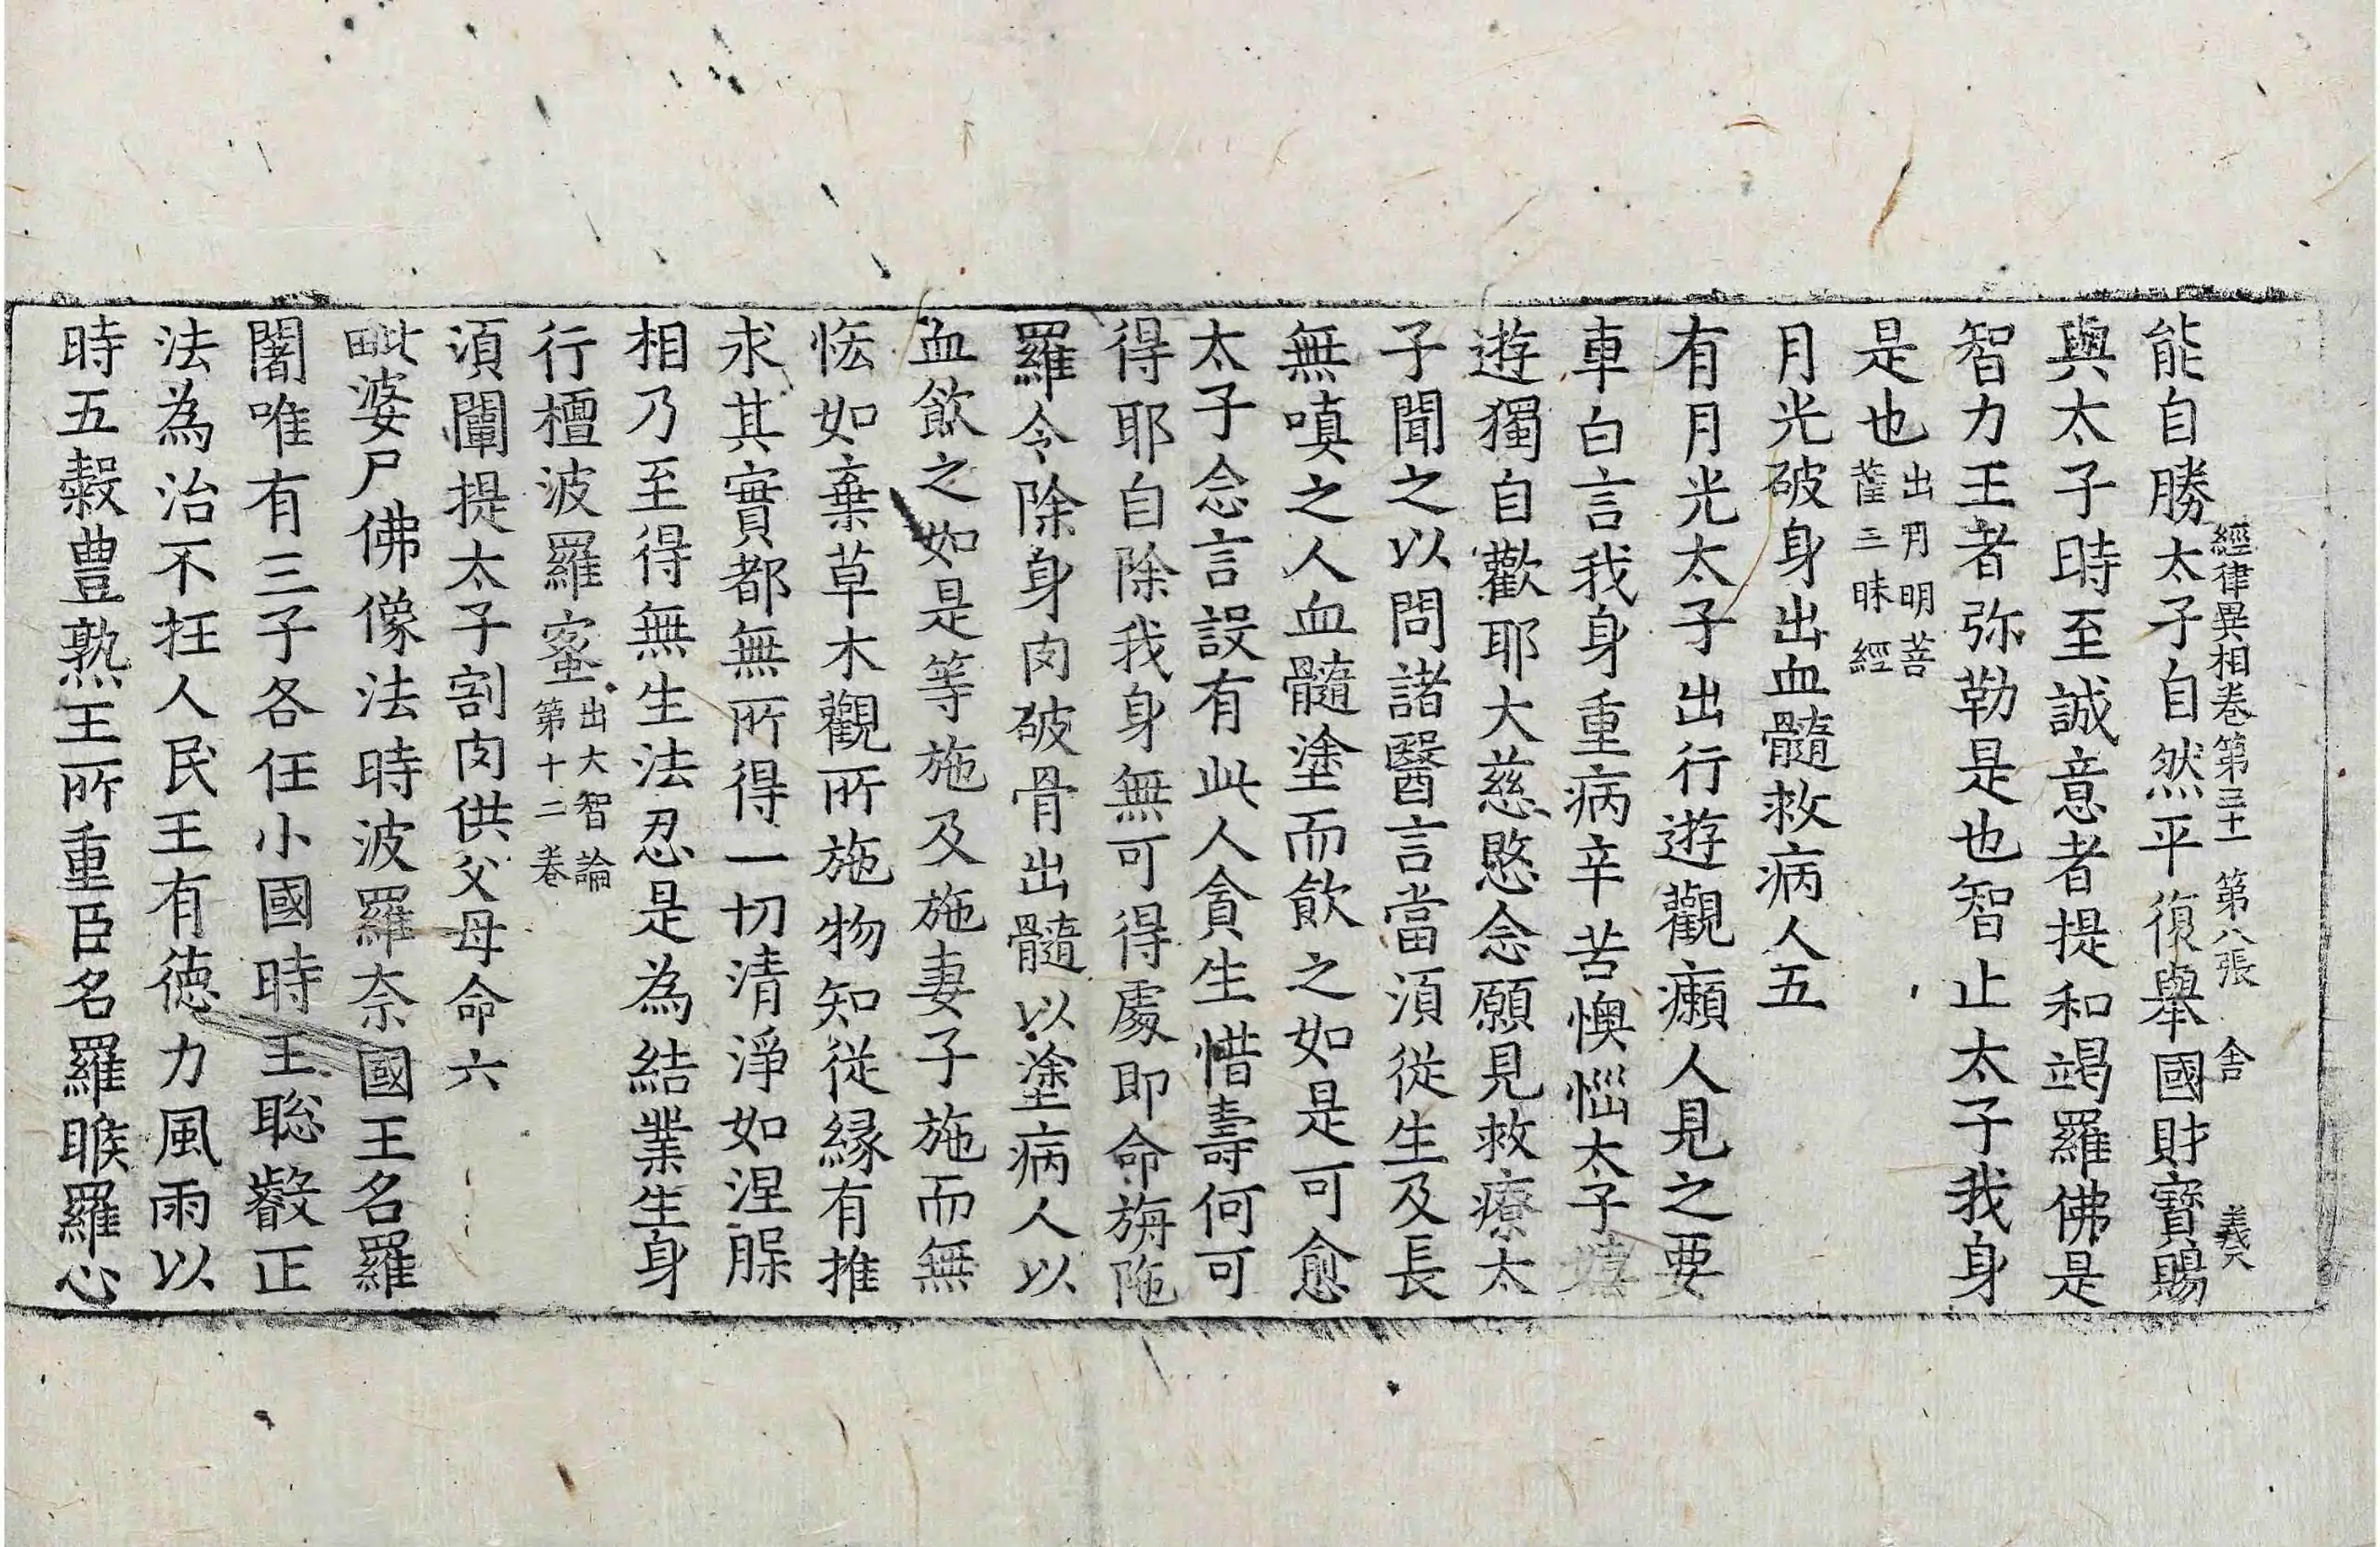 經律異相卷第三十一 第八張 舍 義
能自勝太子自然平復舉國財寶賜
與太子時至誠意者提和竭羅佛是
智力王者弥勒是也智止太子我身
是也出月明菩
薩三昧經
月光破身出血髓救病人五
有月光太子出行遊觀癩人見之要
車白言我身重病辛苦懊惱太子嬉
遊獨自歡耶大慈愍念願見救療太
子聞之以問諸醫醫言當須從生及長
無嗔之人血髓塗而飲之如是可愈
太子念言設有此人貪生惜壽何可
得耶自除我身無可得處即命旃陁
羅令除身肉破骨出髓以塗病人以
血飲之如是等施及施妻子施而無
悋如棄草木觀所施物知從緣有推
求其實都無所得一切清淨如涅槃
相乃至得無生法忍是為結業生身
行檀波羅蜜出大智論
第十二卷
須闡提太子割肉供父母命六
毗婆尸佛像法時波羅奈國王名羅
闍唯有三子各任小國時王聡叡正
法為治不枉人民王有德力風雨以
時五穀豊熟王所重臣名羅睺羅心